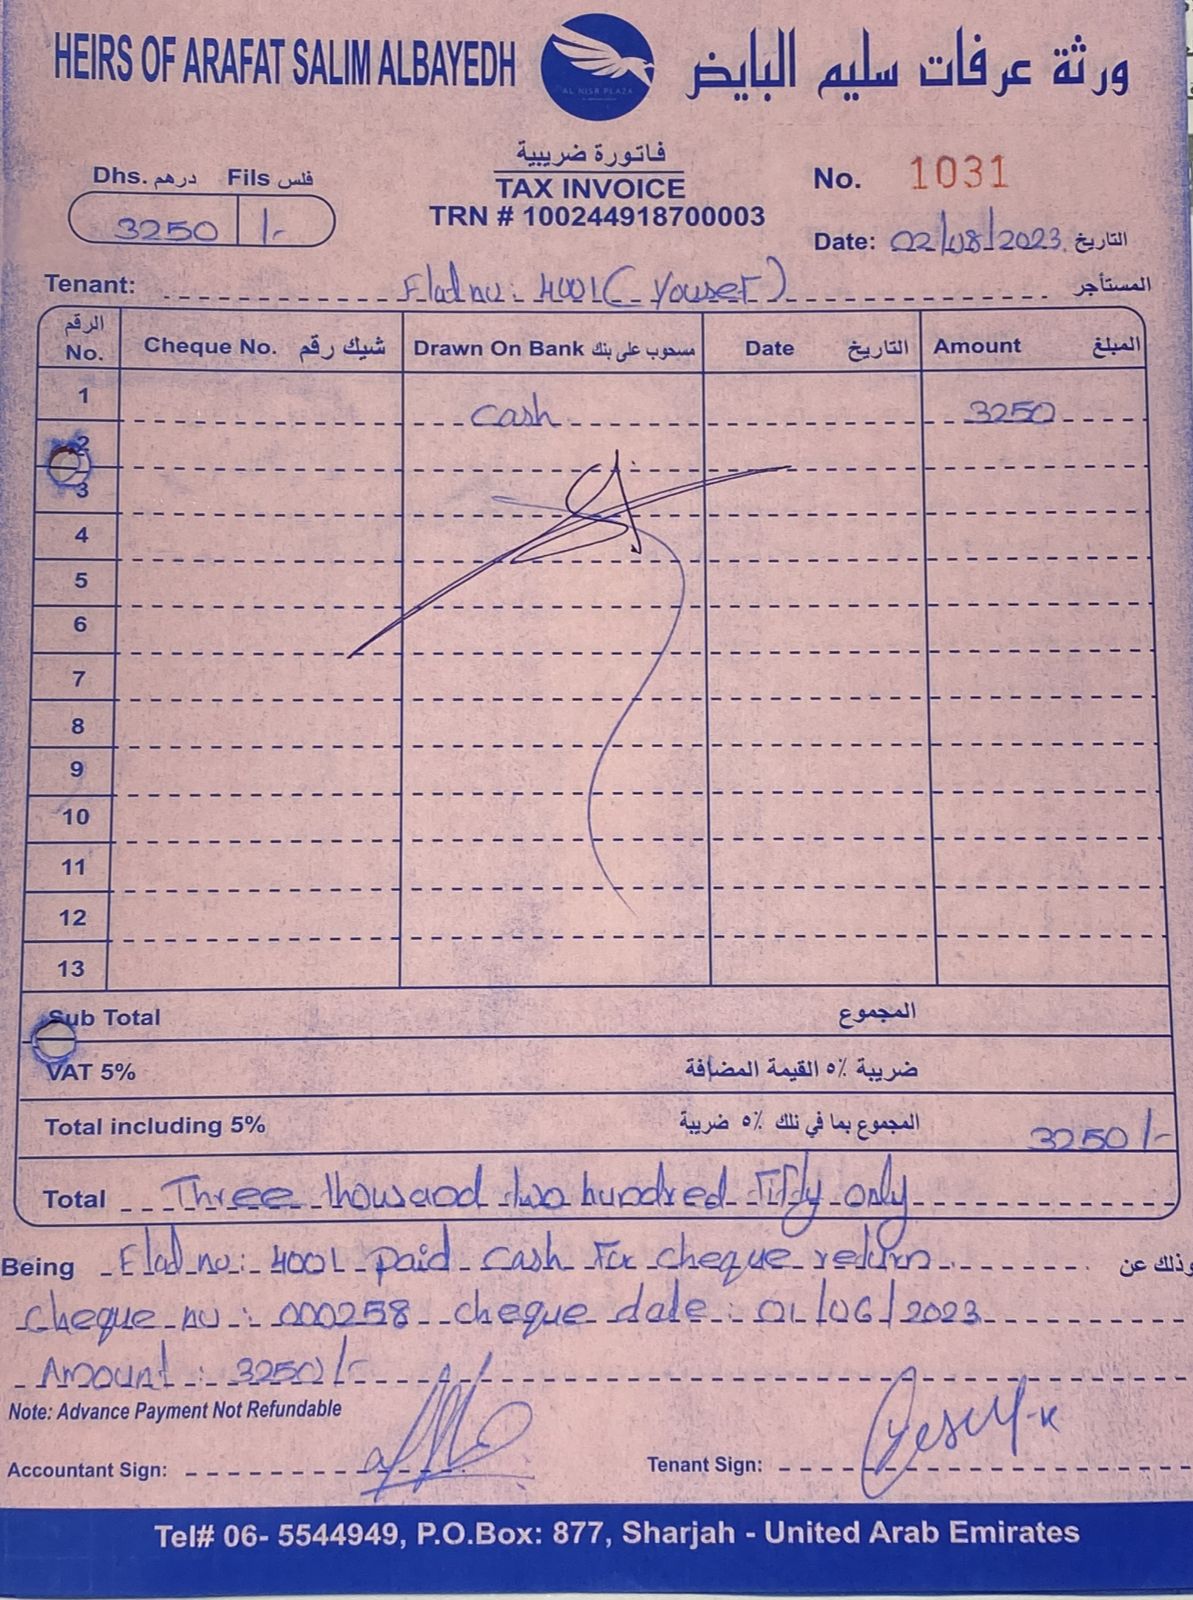 HEIRS OF ARAFAT SALIM ALBAYEDH
AL NISR PLAZA
ورثة عرفات سليم البايض
فاتورة ضريبية
TAX INVOICE
TRN # 100244918700003
Dhs. درهم Fils فلس
3250 /-
No. 1031
Date: 02/08/2023 التاريخ
Tenant: Flat no: 4001 (Yousef) المستأجر
الرقم No. Cheque No. شيك رقم Drawn On Bank مسحوب على بنك Date التاريخ Amount المبلغ
1 cash 3250
2
3
4
5
6
7
8
9
10
11
12
13
Sub Total المجموع
VAT 5% ضريبة ٥٪ القيمة المضافة
Total including 5% المجموع بما في تلك ٥٪ ضريبة 3250/-
Total Three thousand two hundred Fifty only
Being Flat no: 4001 paid cash For cheque return وذلك عن
cheque no: 000258 cheque date: 01/06/2023
Amount: 3250/-
Note: Advance Payment Not Refundable
Accountant Sign:
Tenant Sign:
Tel# 06- 5544949, P.O.Box: 877, Sharjah - United Arab Emirates